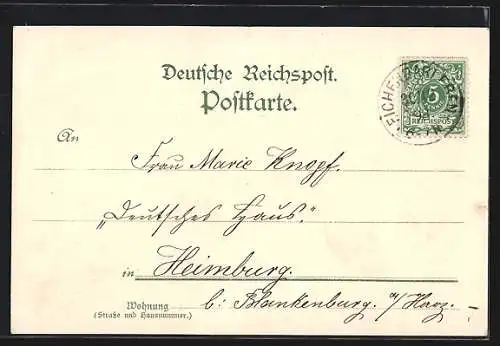 Deutsche Reichspost.
Postkarte.
5
REICHSPOST
An
Frau Marie Knopf.
„Deutsches Haus."
in Heimburg.
Wohnung
(Straße und Hausnummer.)
b: Blankenburg. a/Harz.